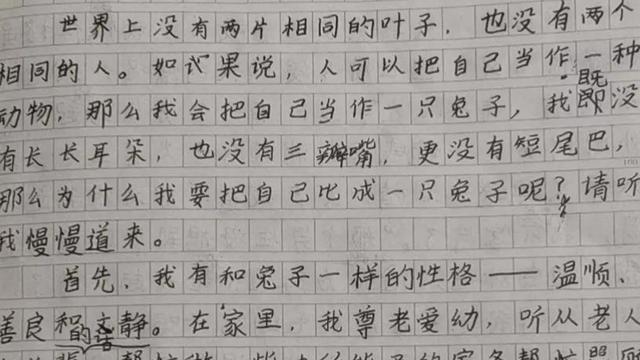 世界上没有两片相同的叶子，也没有两个
相同的人。如果说，人可以把自己当作一种
动物，那么我会把自己当作一只兔子，我既没
有长长耳朵，也没有三瓣嘴，更没有短尾巴，
那么为什么我要把自己比成一只兔子呢？请听
我慢慢道来。
首先，我有和兔子一样的性格——温顺、
善良和文静。在家里，我尊老爱幼，听从老人
的话